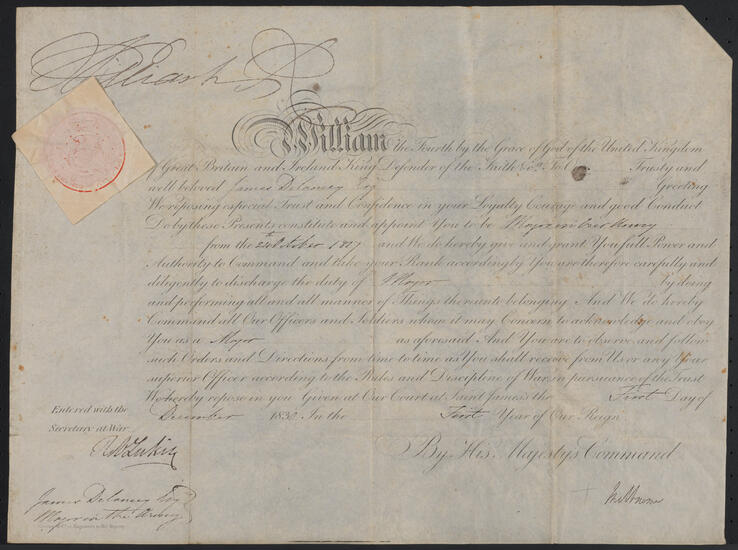 William R
William the Fourth by the Grace of God of the United Kingdom
of Great Britain and Ireland King Defender of the Faith &c. To Trusty and
well beloved James Delancey Esqr. Greeting
We reposing especial Trust and Confidence in your Loyalty Courage and good Conduct
Do by these Presents constitute and appoint You to be Major in Our Army
from the October 1807 and We do hereby give and grant You full Power and
Authority to Command and take your Rank accordingly You are therefore carefully and
diligently to discharge the duty of Major by doing
and performing all and all manner of Things thereunto belonging And We do hereby
Command all Our Officers and Soldiers whom it may Concern to acknowledge and obey
You as a Major as aforesaid And You are to observe and follow
such Orders and Directions from time to time as You shall receive from Us or any Your
superior Officer according to the Rules and Discipline of War in pursuance of the Trust
We hereby repose in you Given at Our Court at Saint James's the First Day of
December 1830 In the First Year of Our Reign
Entered with the
Secretary at War
By His Majesty's Command
Melbourne
James Delancey Esqr
Major in the Army